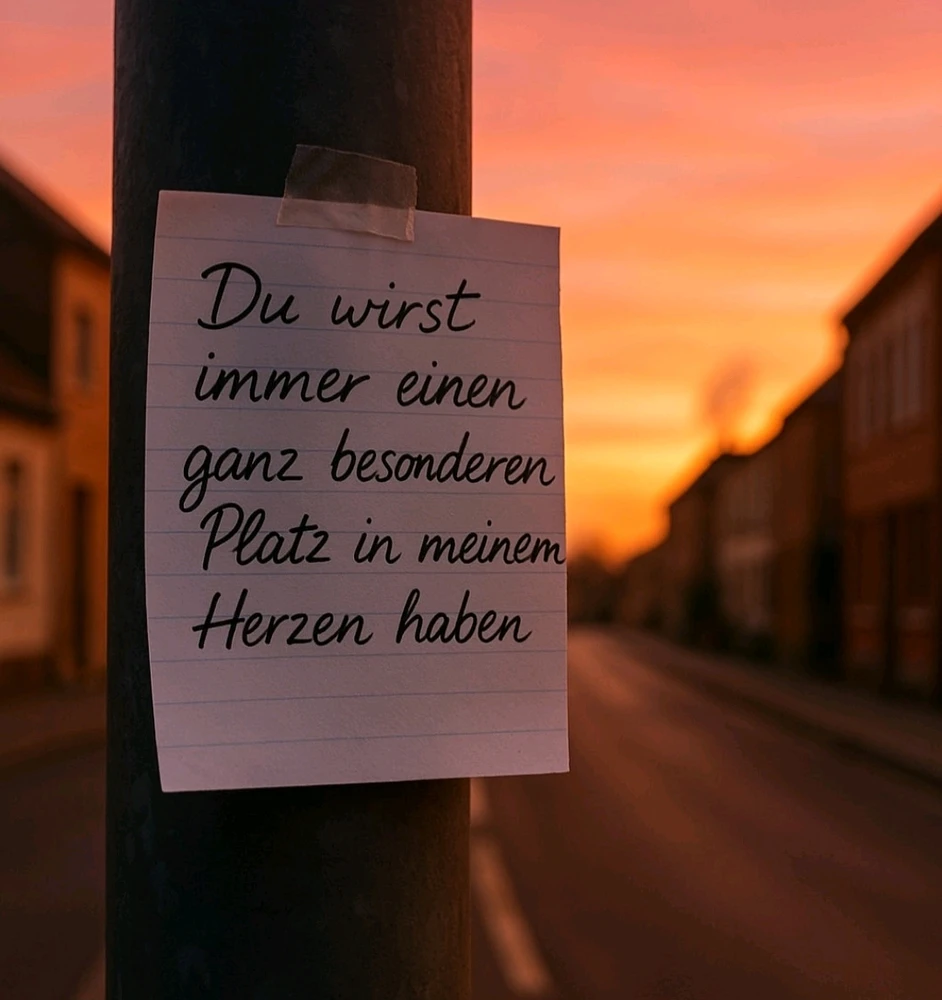 Du wirst
immer einen
ganz besonderen
Platz in meinem
Herzen haben